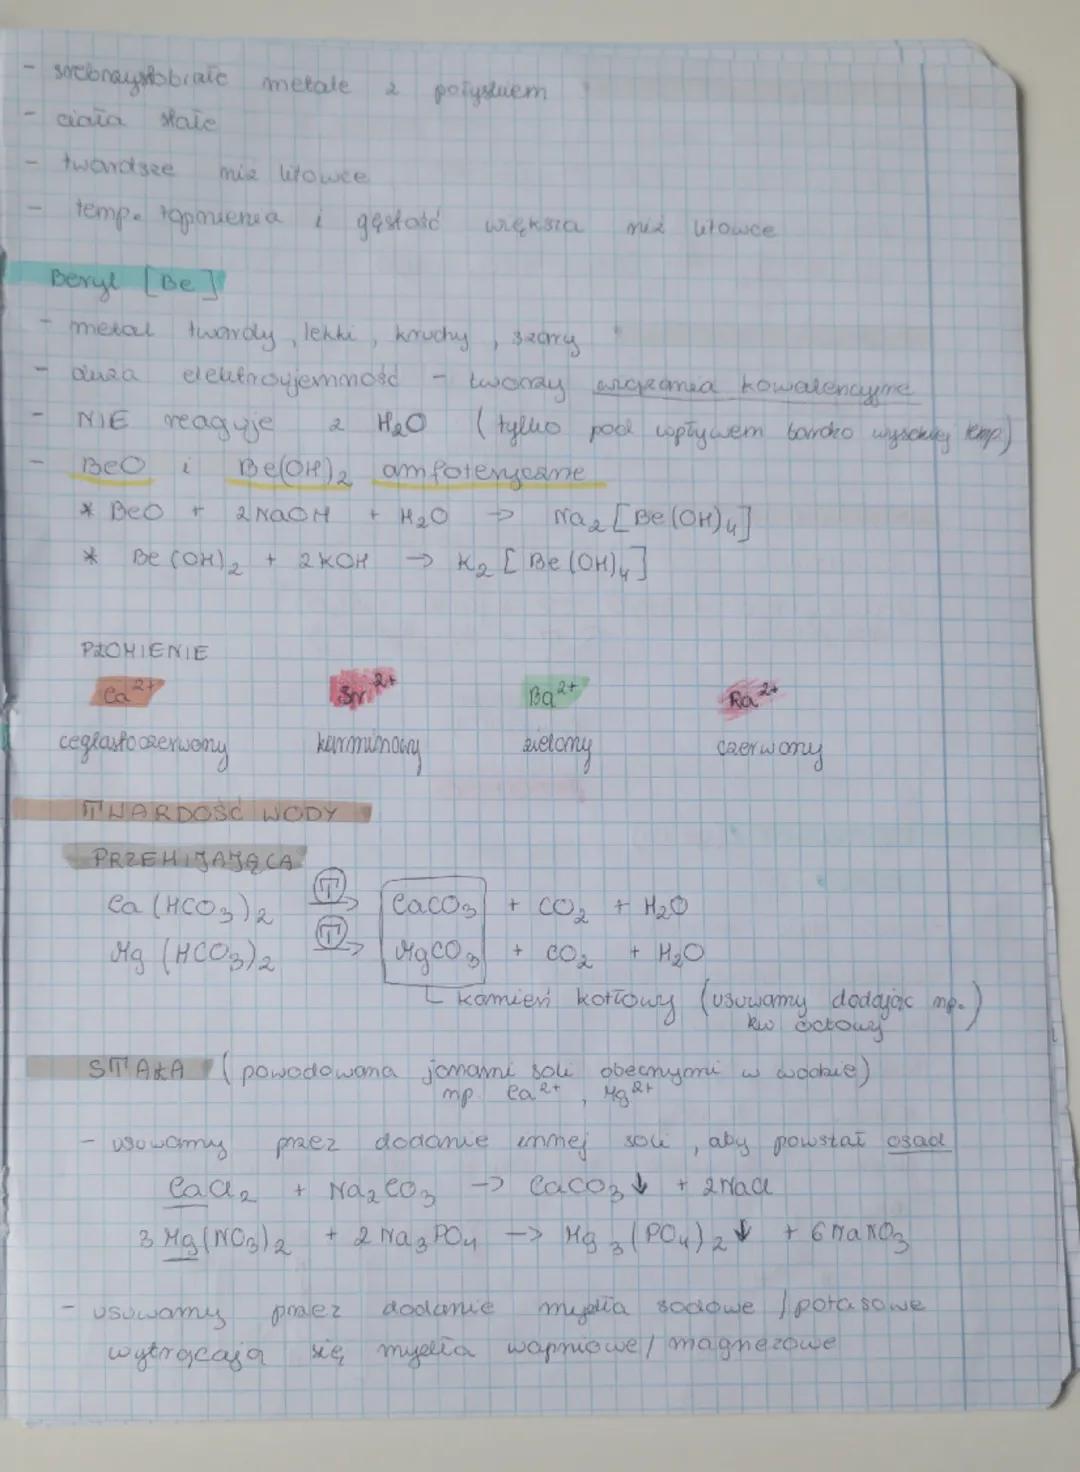 - srebrzystobiałe metale z połyskiem
- ciała stałe
- twardsze niż litowce
- temp. topnienia i gęstość większa niż litowce
Beryl [Be]
- metal twardy, lekki, kruchy, szary
- duża elektroujemność - tworzy wiązania kowalencyjne
- NIE reaguje z H₂O (tylko pod wpływem bardzo wysokiej temp.)
- BeO i Be(OH)₂ amfoteryczne
* BeO + 2NaOH + H₂O → Na₂[Be(OH)₄]
* Be(OH)₂ + 2KOH → K₂[Be(OH)₄]
PŁOMIENIE
Ca²⁺ Sr²⁺ Ba²⁺ Ra²⁺
ceglastoczerwony karminowy zielony czerwony
TWARDOŚĆ WODY
PRZEMIJAJĄCA
Ca(HCO₃)₂ T→ CaCO₃ + CO₂ + H₂O
Mg(HCO₃)₂ T→ MgCO₃ + CO₂ + H₂O
kamień kotłowy (usuwamy dodając np.
kw octowy)
STAŁA (powodowana jonami soli obecnymi w wodzie)
np Ca²⁺, Mg²⁺
- usuwamy przez dodanie innej soli, aby powstał osad
CaCl₂ + Na₂CO₃ → CaCO₃↓ + 2NaCl
3Mg(NO₃)₂ + 2Na₃PO₄ → Mg₃(PO₄)₂↓ + 6NaNO₃
- usuwamy przez dodanie mydła sodowe / potasowe
wytrącają się mydła wapniowe / magnezowe